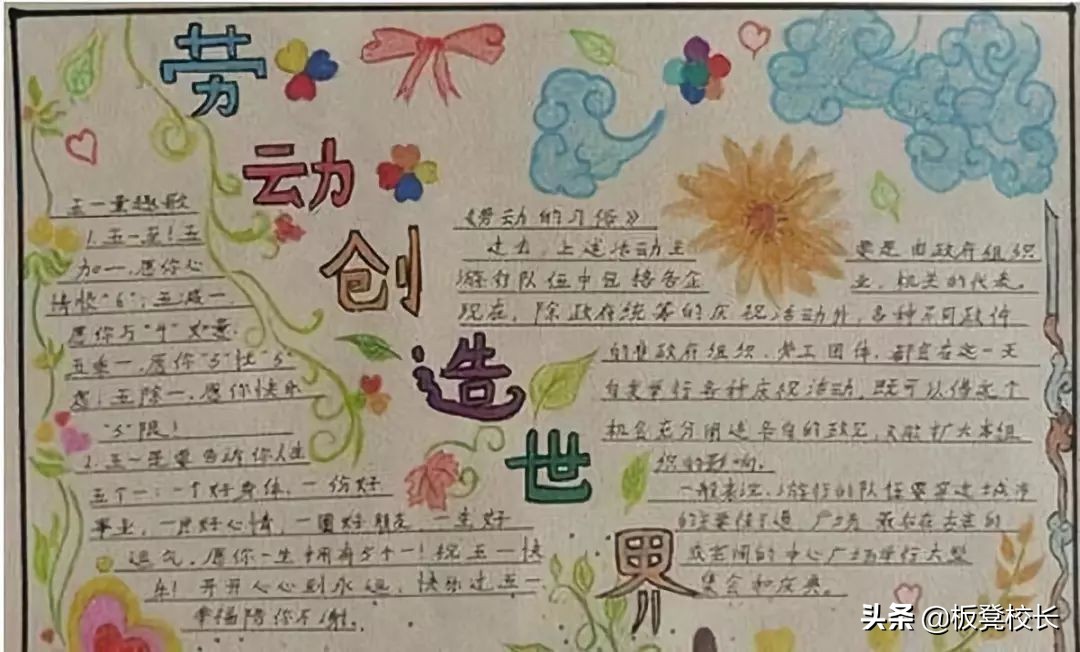 劳动创造世界
五一童趣歌
1.五一至!五
加一,愿你心
情快"6";五减一,
愿你与"4"
五乘一,愿你"5"快"5"
虑;五除一,愿你快乐
"5"限!
2.五一是要告诉你人生
五个一:一个好身体,一份好
事业,一片好心情,一圈好朋友,一生好
运气,愿你一生拥有5个一!祝五一快
乐!开开心心到永远,快乐过五一
幸福陪你不谢。
《劳动的习俗》
过去,上述活动主 要是由政府组织
游行队伍中包括各企 业、机关的代表。
现在,除政府统筹的庆祝活动外,各种不同政件
的非政府组织、劳工团体,都宜在这一天
自发举行各种庆祝活动,既可以借这个
机会充分阐述各自的政见,又能扩大本组
织的影响。
一般来说,游行的队伍要穿过城市
的主要街道、广场,最后在去芸的
众空阔的中心广场举行大型
集会和庆典。
头条 @板凳校长